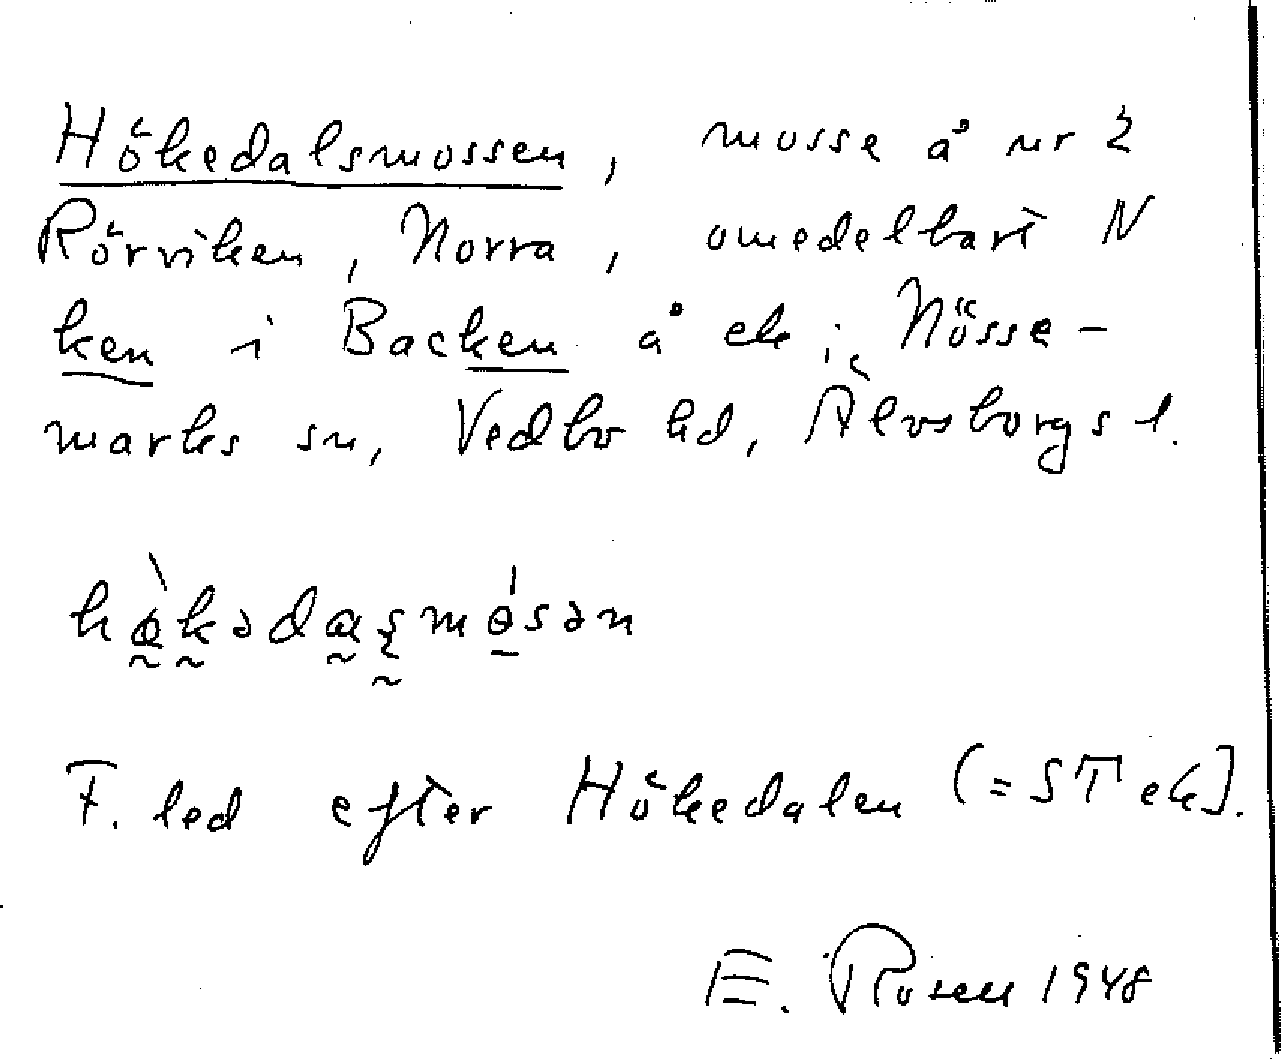 Hökedalsmossen, mosse å nr 2
Rörviken, Norra, omedelbart N
ken i Backen å ek i Nösse-
marks sn, Vedbo hd, Älvsborgs l.
F. led efter Hökedalen (= ST ek).
E. Rosell 1948